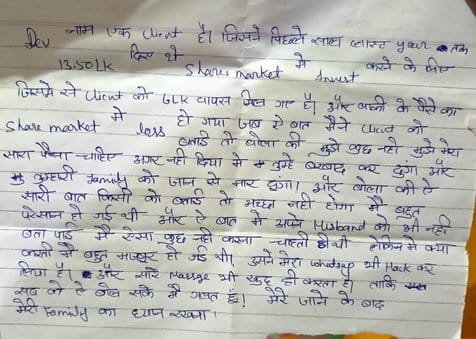 Dev नाम एक Client है। जिसने पिछले साल लास्ट year तक
13.50LK दिए थे Share market में Invest करने के लिए
जिसमें से Client को 6LK वापस मिल गए है। और बाकी के पैसे का
Share market में loss हो गया जब ये बात मैंने Client को
बताई तो बोला की मुझे कुछ नही मुझे मेरा
सारा पैसा चाहिए अगर नही दिया में तुमे बरबाद कर दुगा और
तुम्हारी Family को जान से मार दूंगा। और बोला की ये
सारी बात किसी को बताई तो अच्छा नही होगा मैं बहुत
परेसान हो गई थी और ये बात में अपने Husband को भी नही
बता पाई मैं ऐसा कुछ नही करना चाहती थी लेकिन में क्या
करती मैं बहुत मजबूर हो गई थी। उसने मेरा whatsapp भी Hack कर
लिया है। और सारे Massage भी खुद ही करता है। ताकि
सब को ये बोल सके मैं गलत हुं। मेरे जाने के बाद
मेरी Family का ध्यान रखना।